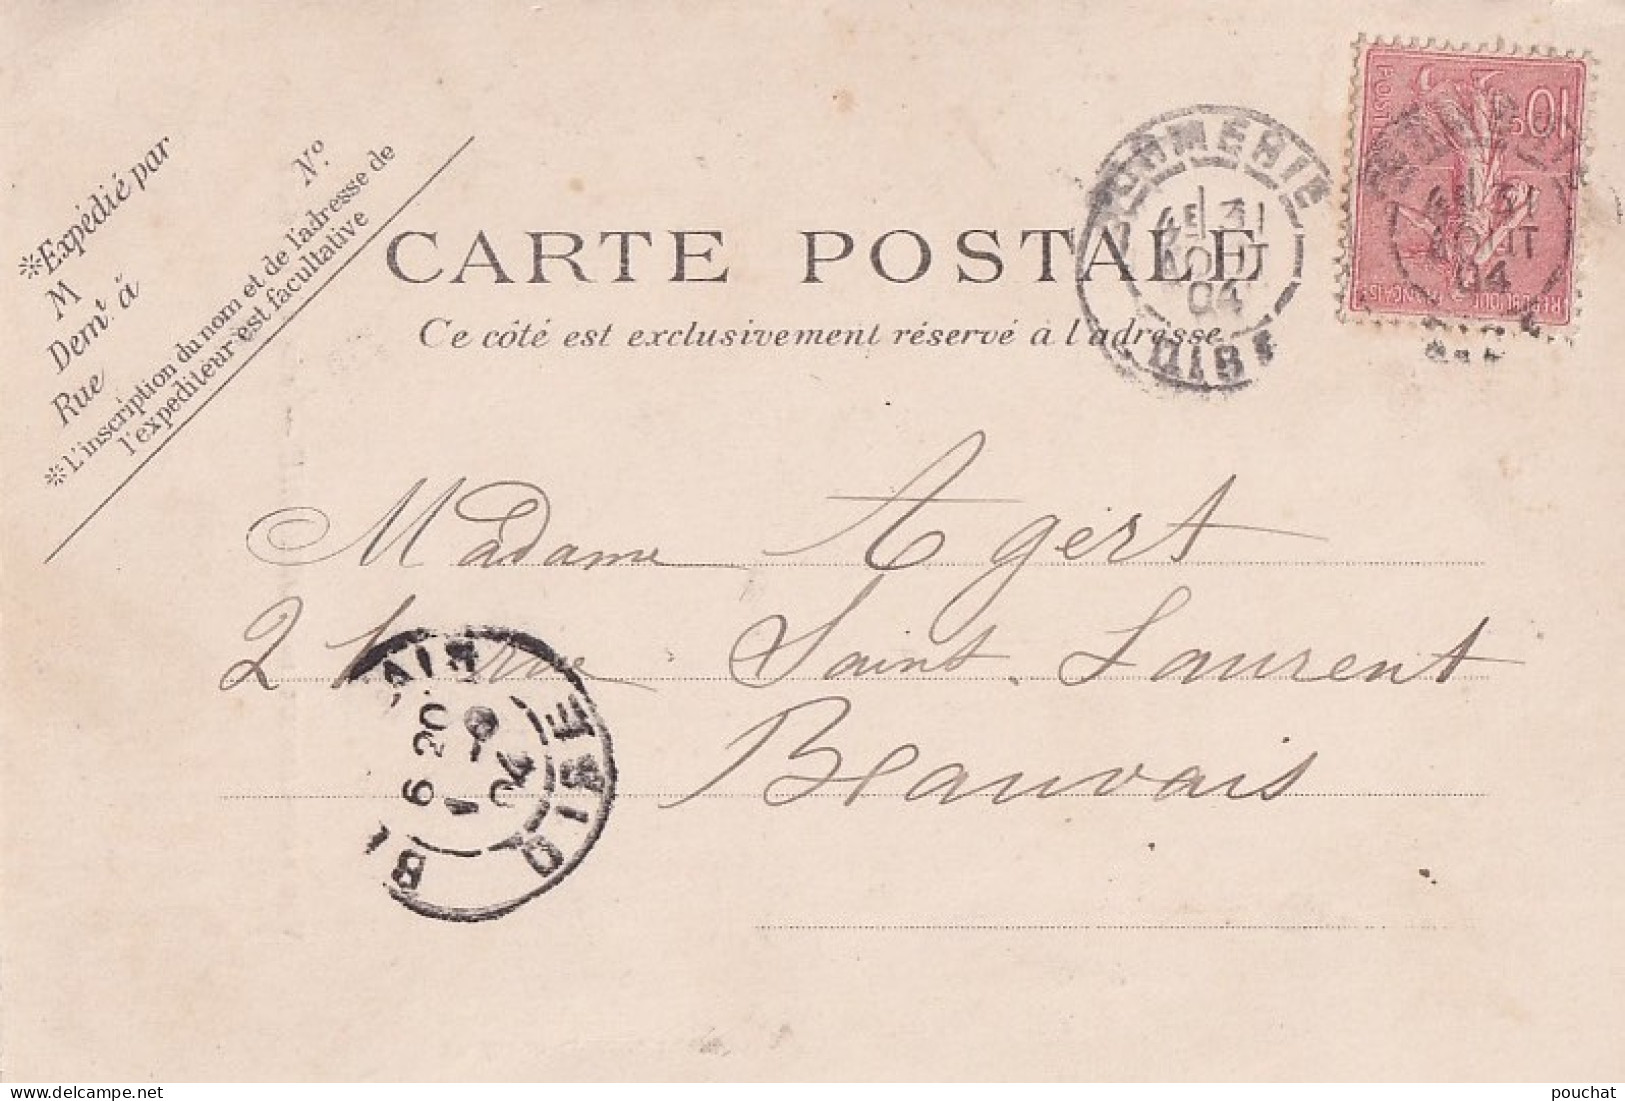 *Expédié par
M
Demt à
Rue No
*L'inscription du nom et de l'adresse de
l'expéditeur est facultative
CARTE POSTALE
Ce côté est exclusivement réservé à l'adresse
4E 31
AOUT
04
OISE
10c
POSTES
REPUBLIQUE FRANÇAISE
31
AOUT
04
Madame Agert
2 rue Saint Laurent
Beauvais
6 20
04
OISE
pouchat